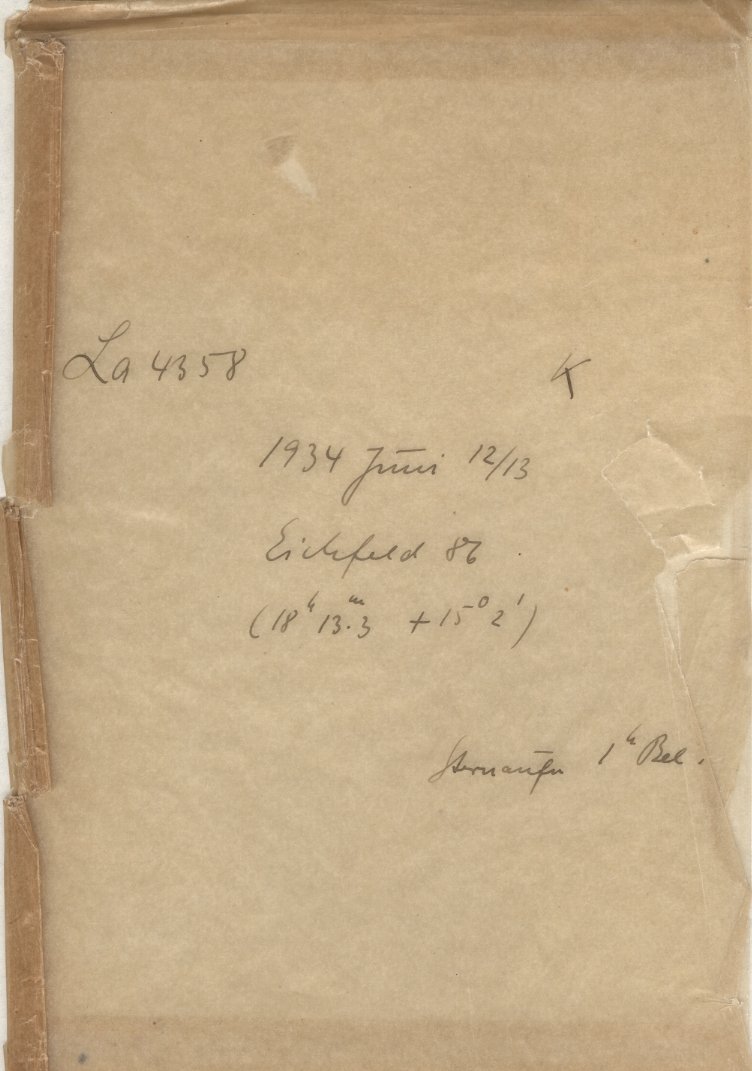 La 4358 K
1934 Juni 12/13
Eichfeld 86
(18ʰ 13ᵐ.3 +15° 2')
Sternaufn 1ʰ Bel.